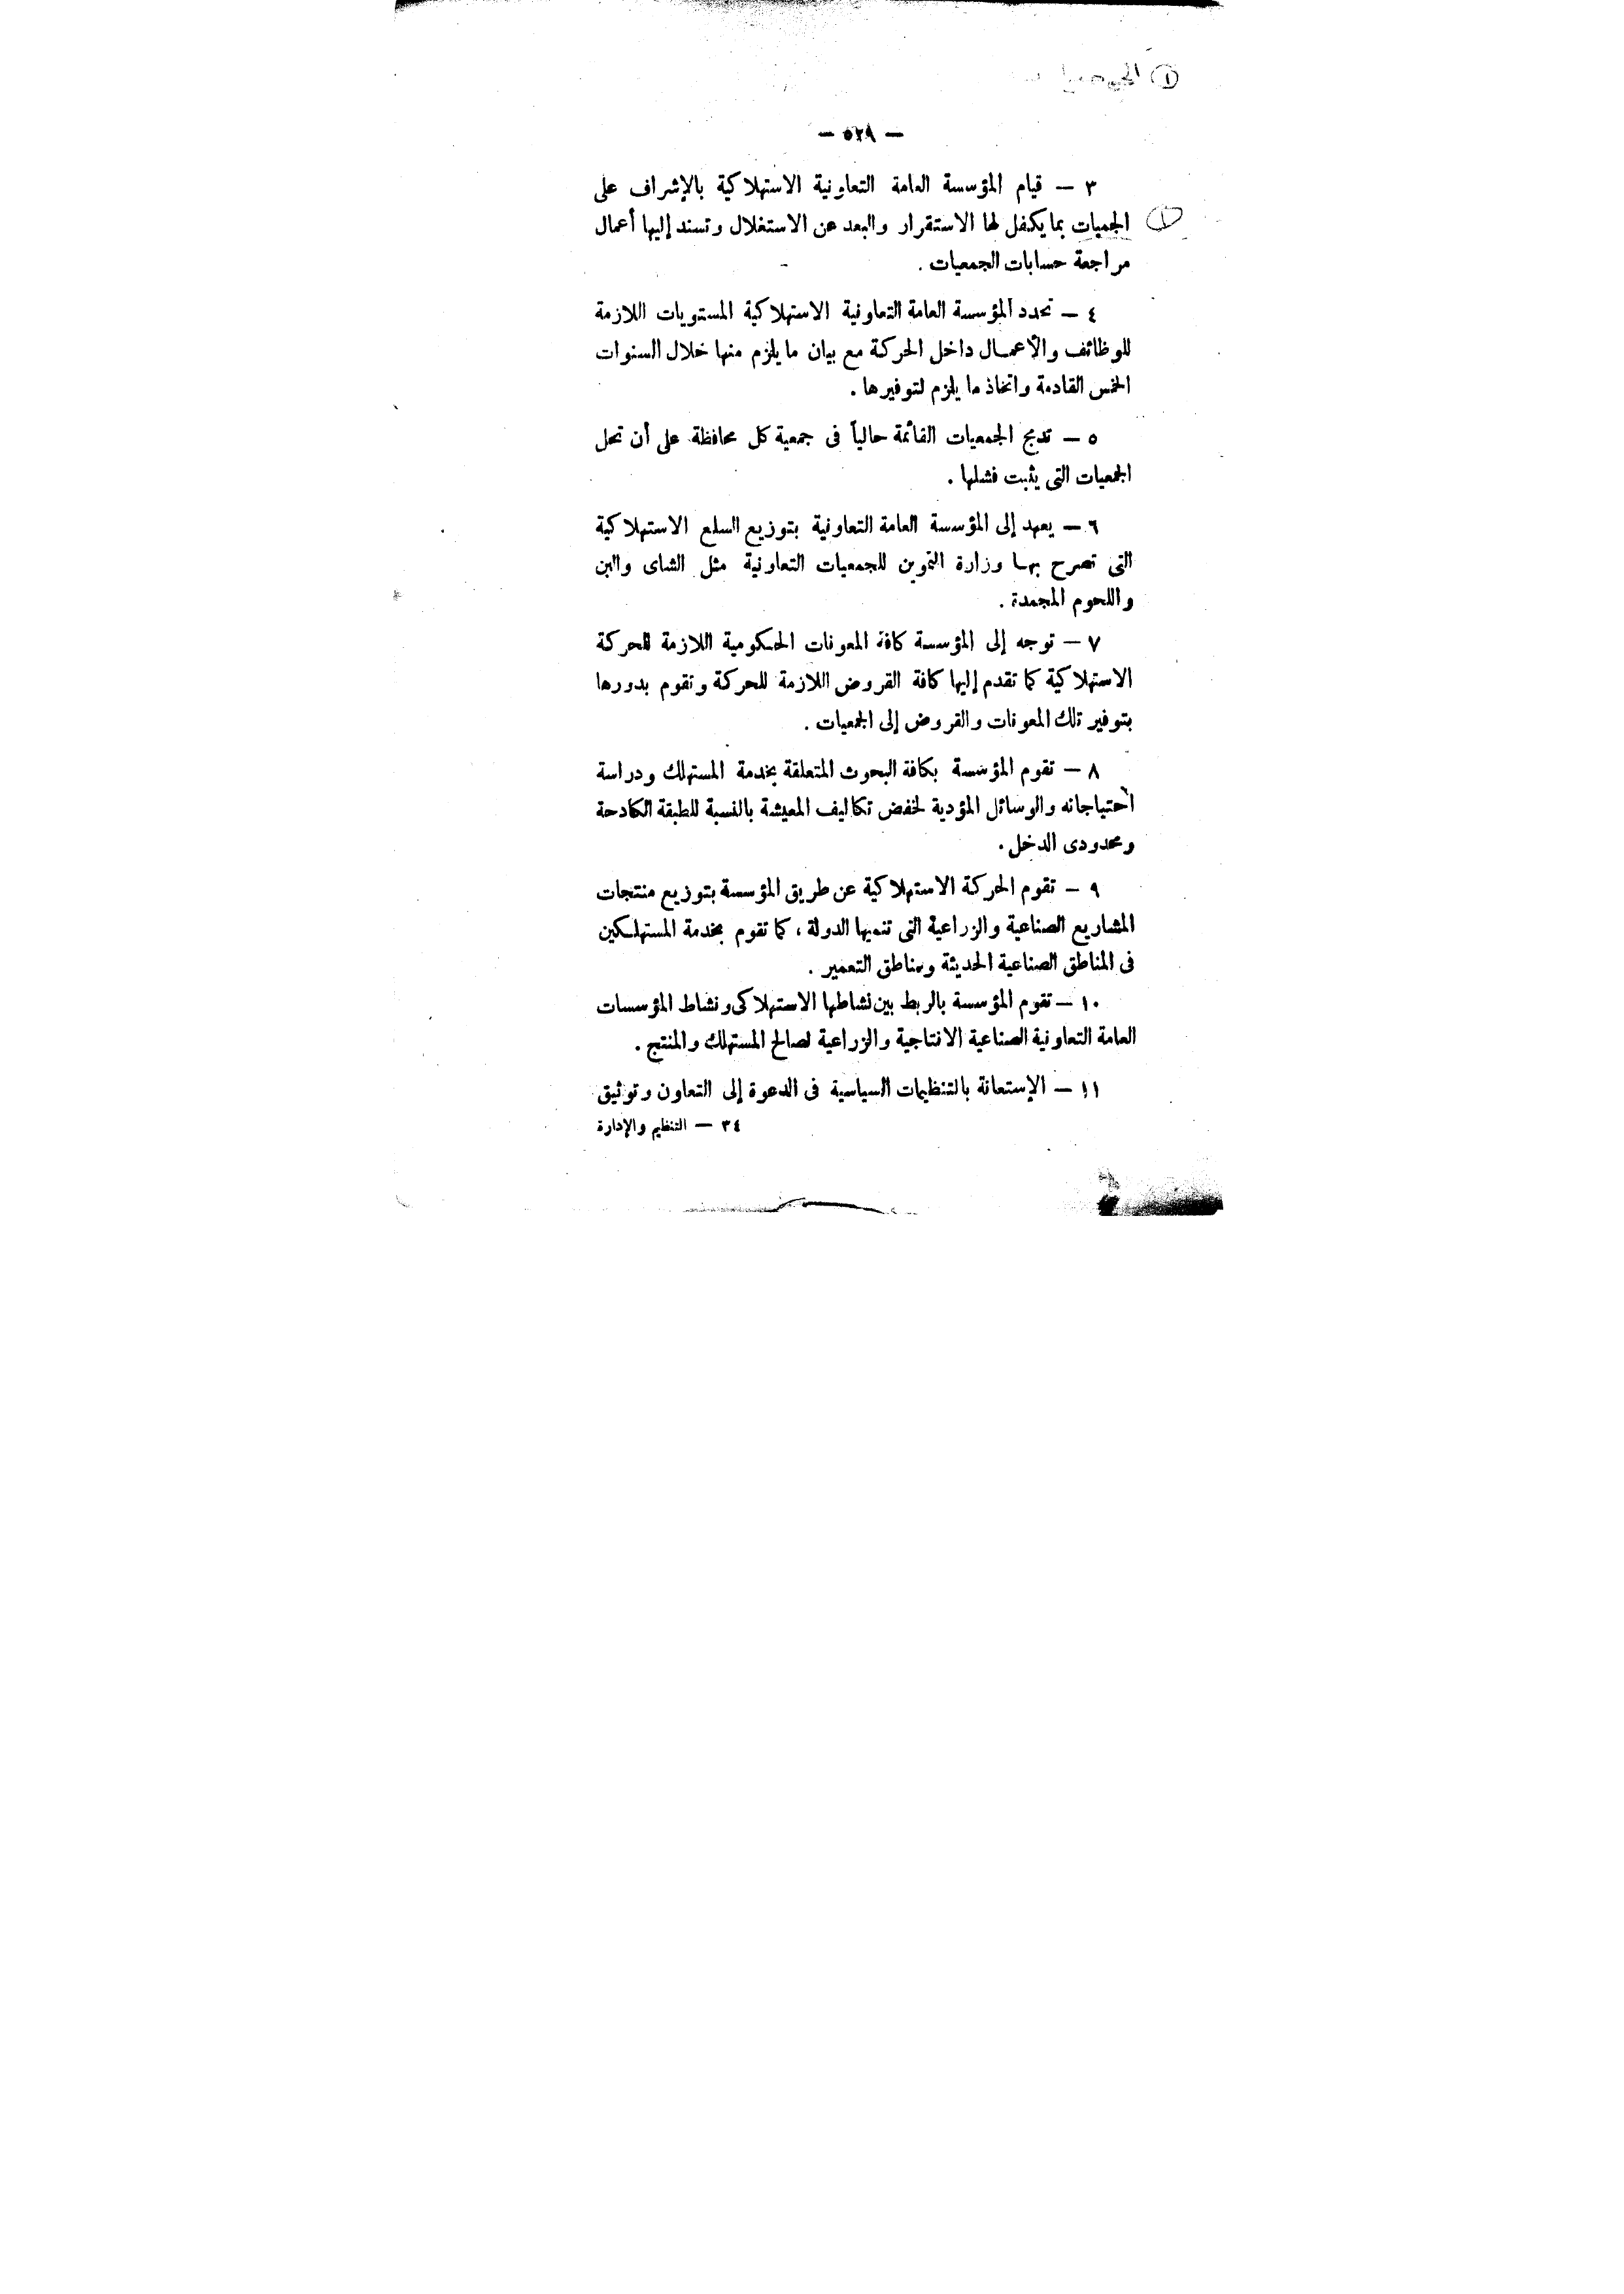 — ٥٢٩ —
٣ — قيام المؤسسة العامة التعاونية الاستهلاكية بالإشراف على
الجميات بما يكفل لها الاستقرار والبعد عن الاستغلال وتسند إليها أعمال
مراجعة حسابات الجمعيات .
٤ — تحدد المؤسسة العامة التعاونية الاستهلاكية المستويات اللازمة
للوظائف والأعمال داخل الحركة مع بيان ما يلزم منها خلال السنوات
الخمس القادمة واتخاذ ما يلزم لتوفيرها .
٥ — تدمج الجمعيات القائمة حالياً فى جمعية كل محافظة على أن تحل
الجمعيات التى يثبت فشلها .
٦ — يعهد إلى المؤسسة العامة التعاونية بتوزيع السلع الاستهلاكية
التى تصرح بها وزارة التموين للجمعيات التعاونية مثل الشاى والبن
واللحوم المجمدة .
٧ — توجه إلى المؤسسة كافة المعونات الحكومية اللازمة للحركة
الاستهلاكية كما تقدم إليها كافة القروض اللازمة للحركة وتقوم بدورها
بتوفير تلك المعونات والقروض إلى الجمعيات .
٨ — تقوم المؤسسة بكافة البحوث المتعلقة بخدمة المستهلك ودراسة
احتياجاته والوسائل المؤدية لخفض تكاليف المعيشة بالنسبة للطبقة الكادحة
ومحدودى الدخل .
٩ — تقوم الحركة الاستهلاكية عن طريق المؤسسة بتوزيع منتجات
المشاريع الصناعية والزراعية التى تنميها الدولة ، كما تقوم بخدمة المستهلكين
فى المناطق الصناعية الحديثة ومناطق التعمير .
١٠ — تقوم المؤسسة بالربط بين نشاطها الاستهلاكى ونشاط المؤسسات
العامة التعاونية الصناعية الانتاجية والزراعية لصالح المستهلك والمنتج .
١١ — الإستعانة بالتنظيمات السياسية فى الدعوة إلى التعاون وتوثيق
٣٤ — التنظيم والإدارة